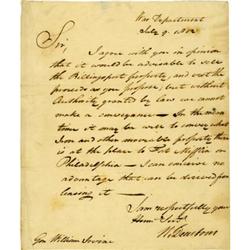 War Department
July 9. 1802
Sir,
I agree with you in opinion
that it would be adviseable to sell
the Billingsport property, and vest the
proceeds as you propose; but without
Authority granted by law we cannot
make a conveyance — In the mean
time it may be well to convey what
Iron and other moveable property there
is at the place to Fort Mifflin or
Philadelphia — I can conceive no
advantage that can be derived from
leasing it —
I am respectfully your
Hum. Servt.
H. Dearborn
Gen. William Irvine